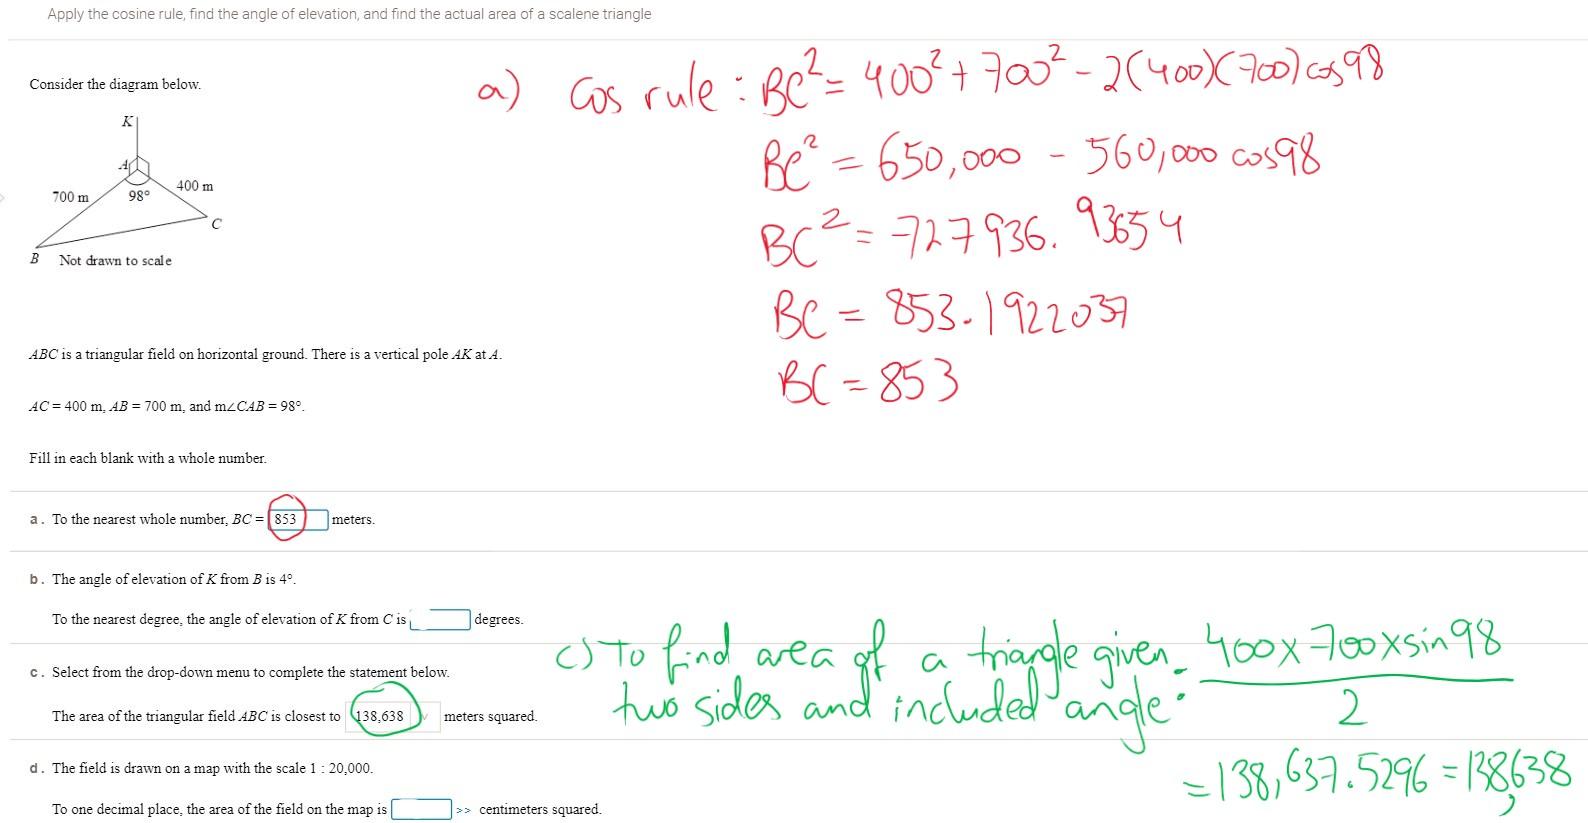 Apply the cosine rule, find the angle of elevation, and find the actual area of a scalene triangle
Consider the diagram below.
K
A
700 m
98°
400 m
C
B
Not drawn to scale
a) Cos rule : BC² = 400² + 700² - 2(400)(700) cos 98
BC² = 650,000 - 560,000 cos98
BC² = 727936.93654
BC = 853.1922037
BC = 853
ABC is a triangular field on horizontal ground. There is a vertical pole AK at A.
AC = 400 m, AB = 700 m, and m∠CAB = 98°.
Fill in each blank with a whole number.
a. To the nearest whole number, BC = 853 meters.
b. The angle of elevation of K from B is 4°.
To the nearest degree, the angle of elevation of K from C is degrees.
c. Select from the drop-down menu to complete the statement below.
The area of the triangular field ABC is closest to 138,638 meters squared.
c) To find area of a triangle given
two sides and included angle:
400 x 700 x sin 98
2
= 138,637.5296 = 138,638
d. The field is drawn on a map with the scale 1 : 20,000.
To one decimal place, the area of the field on the map is >> centimeters squared.